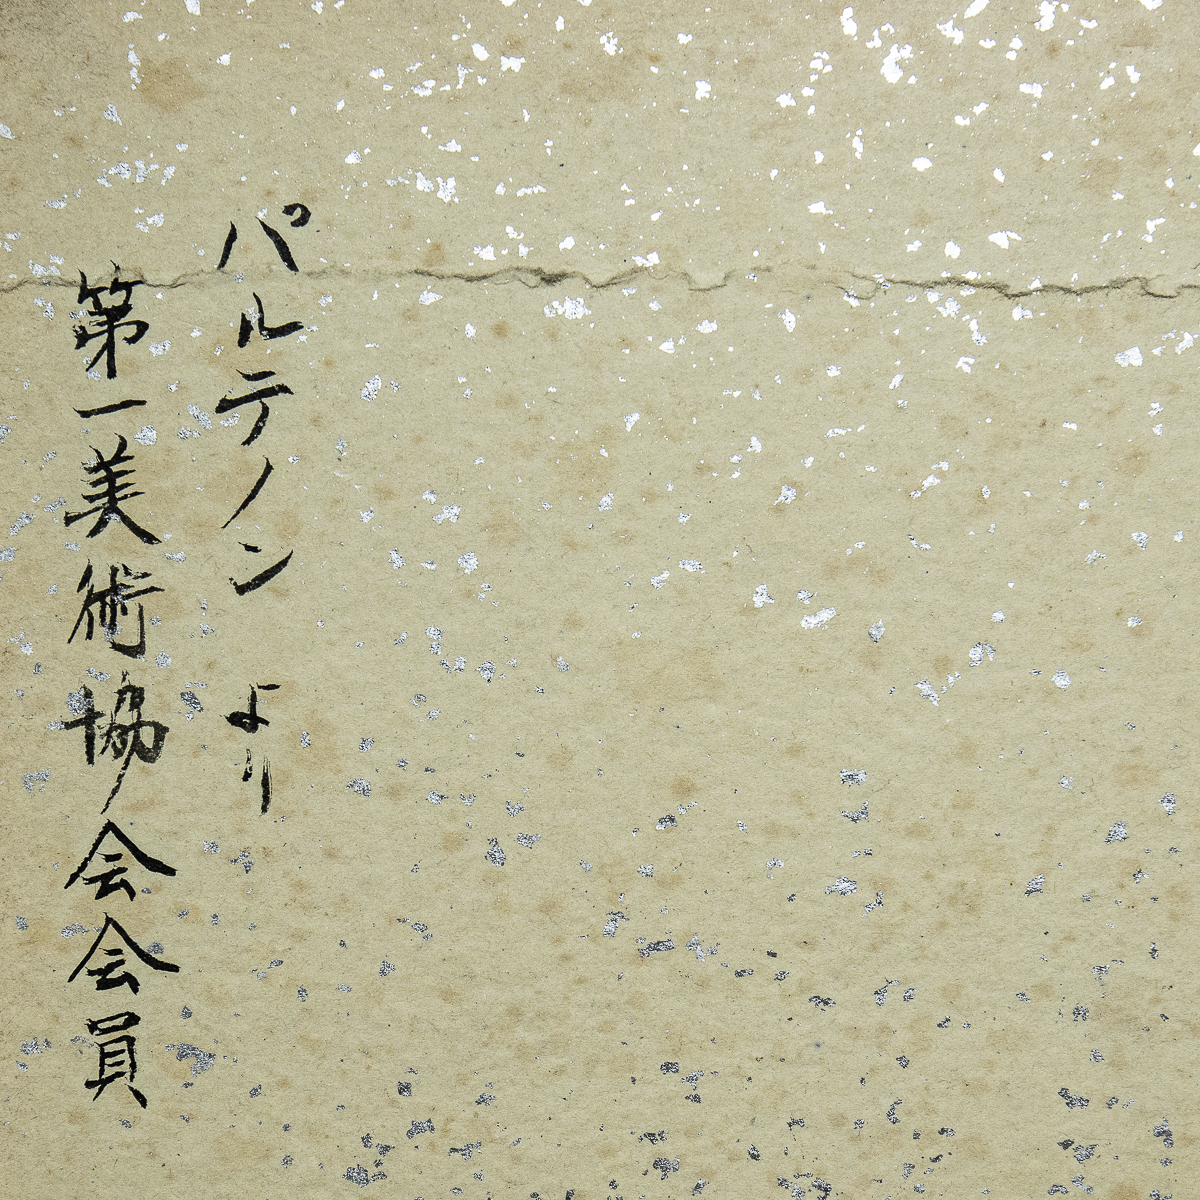 パルテノン より
第一美術協会会員